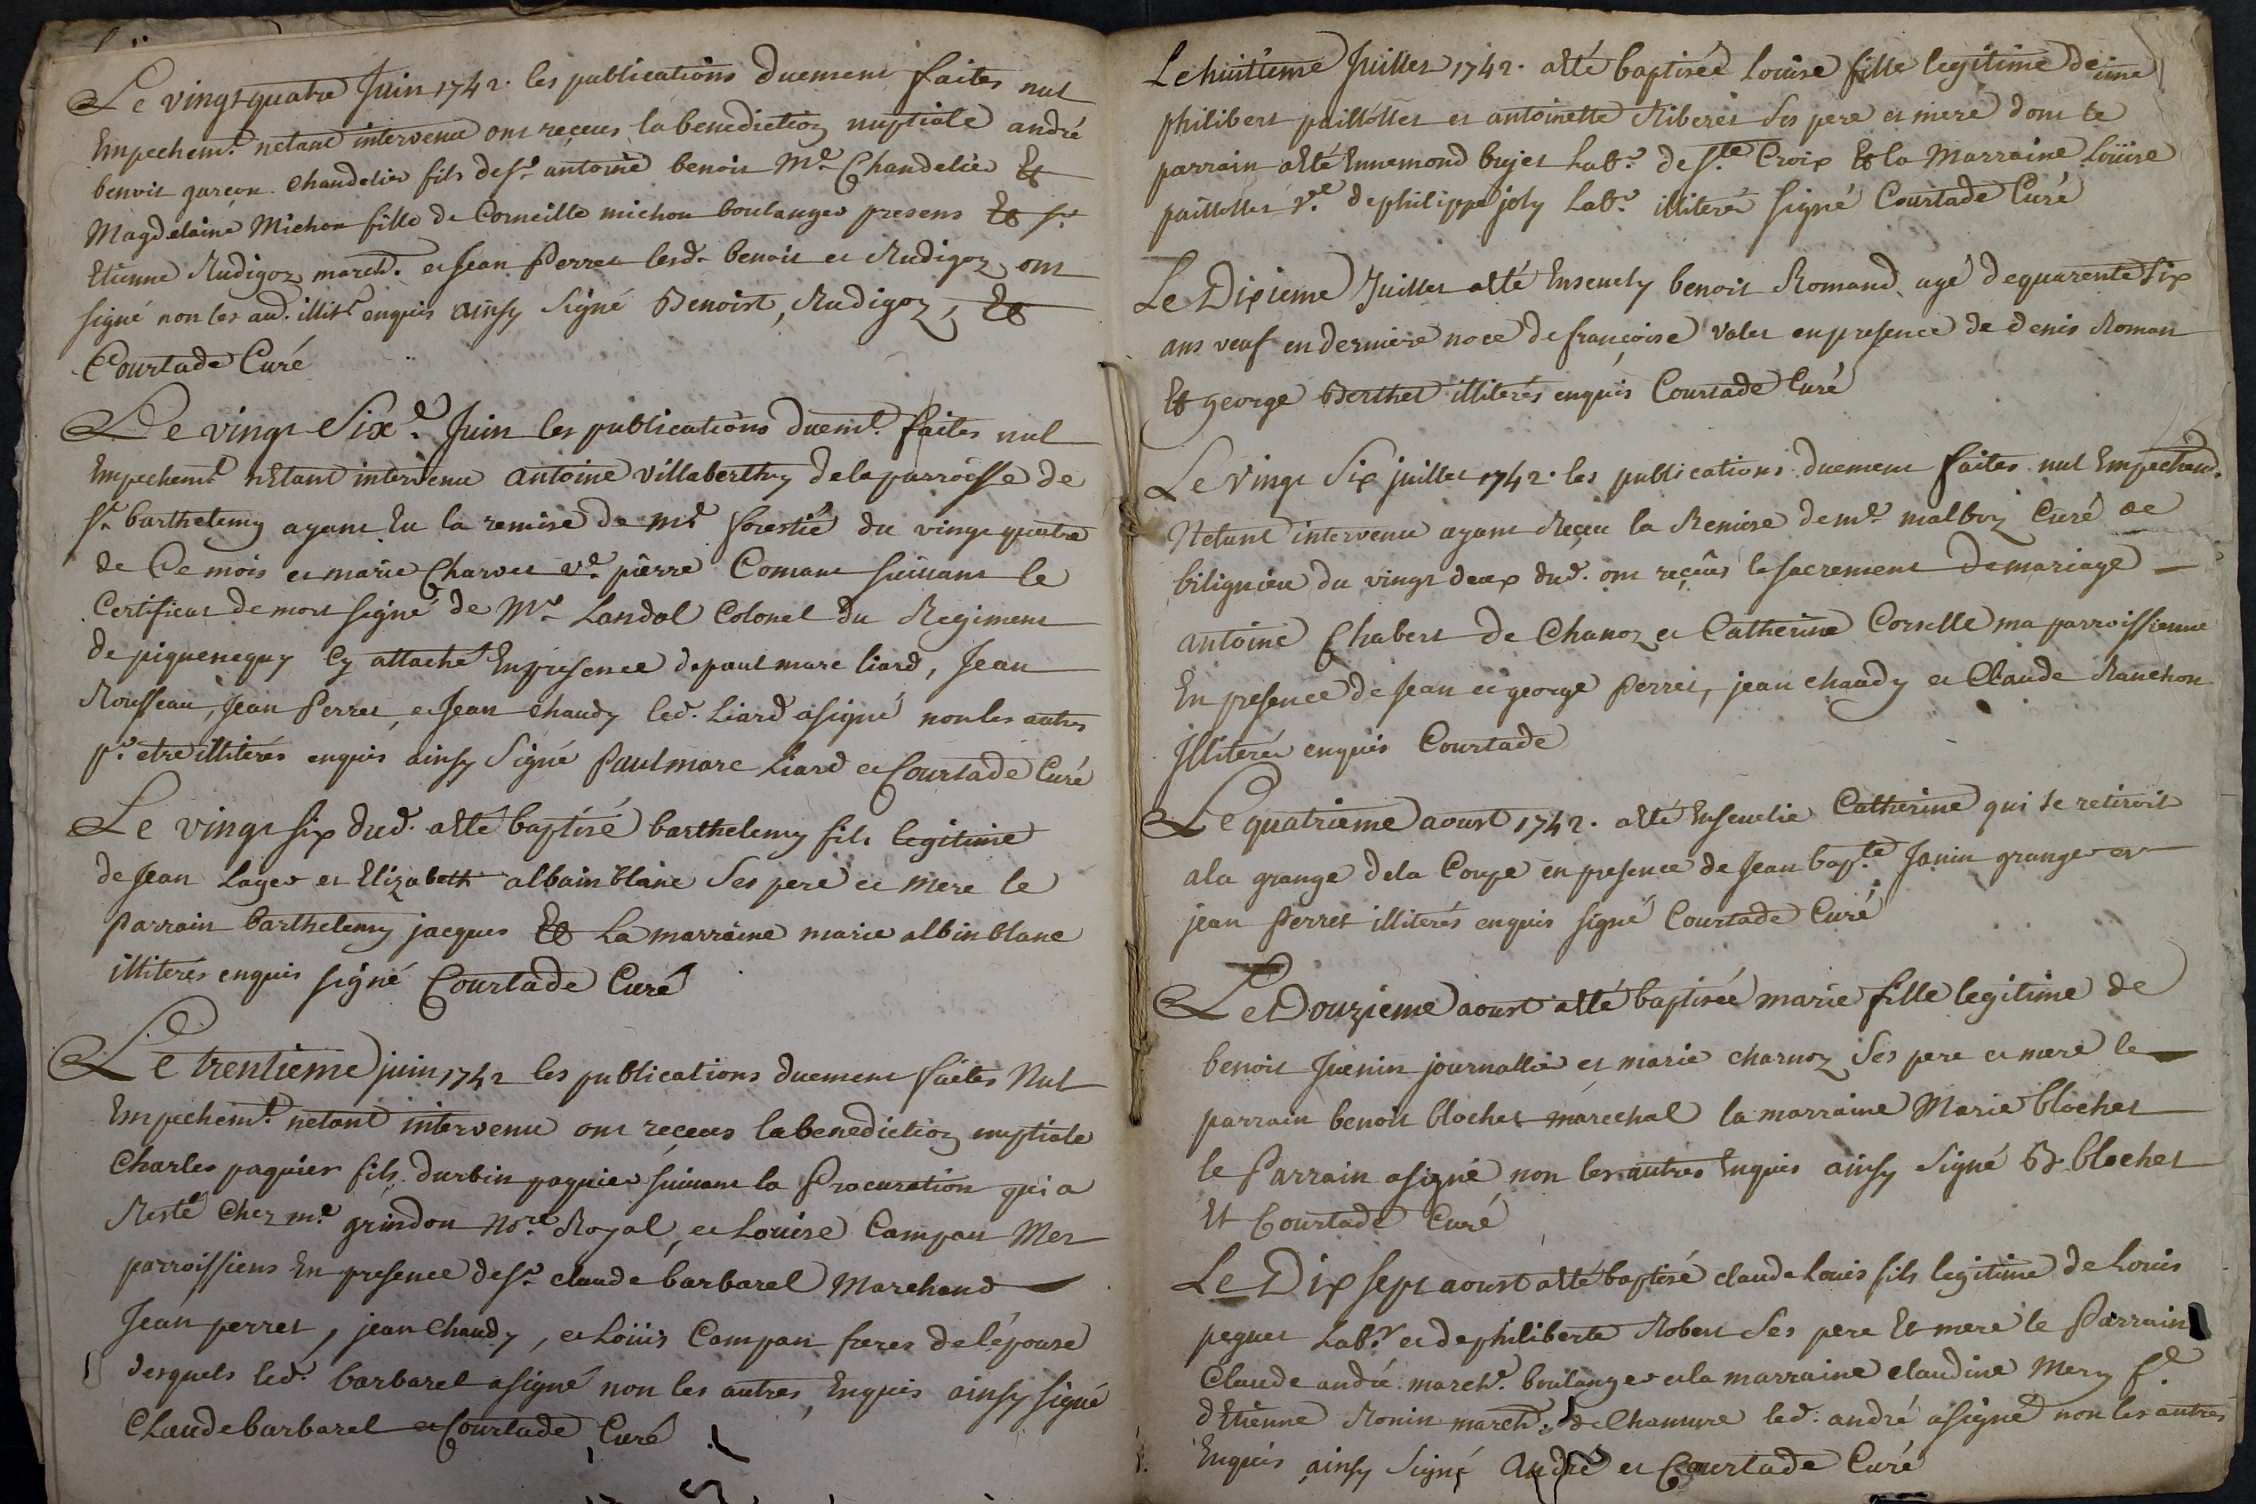 Le vingt quatre Juin 1742. les publications duement faites nul
Empechemt. netant intervenu ont reçeus la benediction nuptiale andré
benoit garçon chandelier fils de Sr. antoine benoit Me. Chandelier Et
Magdelaine Michon fille de Corneille michon boulanger presens Et Sr.
Etienne Rudigoz march. et Jean Perret lesd. benoit et Rudigoz ont
signé non les au. illitr. enquis ainsy signé Benoist, Rudigoz, Et
Courtade Curé
Le vingt Sixe. Juin les publications duemt. faites nul
Empechemt. nEtant intervenu antoine villaberthuy de la parroisse de
St. barthelemy ayant Eu la remise de mr. forestié du vingt quatre
de Ce mois et marie Charvet ve. pierre Comant suivant le
Certificat de mort signé de Mr. Landal Colonel du Regiment
de piquenequy Cy attaché En presence de paul marc liard, Jean
Rousseau, Jean Perret, et Jean chaudy led. Liard a signé non les autres
pr. etre illiterés enquis ainsy Signé Paul marc Liard et Courtade Curé
Le vingt six dud. a Eté baptisé barthelemy fils legitime
de Jean Lager et Elizabeth albain blanc Ses pere et mere le
Parrain barthelemy jacques Et La marraine marie albin blanc
illiterés enquis signé Courtade Curé
Le trentieme juin 1742 les publications duement faites Nul
Empechemt. netant intervenu ont reçeus la benediction nuptiale
Charles paquier fils durbin paquier suivant la Procuration qui a
Resté Chez me. grindon Nore. Royal, et Louise Campan Mes
parroissiens En presence de Sr. claude barbarel Marchand
Jean perret, jean Chaudy, et Loüis Campan freres de l'épouse
desquels led. barbarel a signé non les autres Enquis ainsy signé
Claude barbarel et Courtade Curé
Le huitieme Juillet 1742. a Eté baptisée Louise fille legitime de
philibert paillottet et antoinette Riberet Ses pere et mere dont le
parrain a Eté Ennemond bujet Labr. de Ste. Croix Et la Marraine Loüise
paillottet ve. de philippe joly Labr. illiteré signé Courtade Curé
Le Dixieme Juillet a Eté Ensevely benoit Romand agé de quarente Six
ans veuf en derniere noce de françoise valet en presence de denis Roman
Et george Berthet illiterés enquis Courtade Curé
Le vingt Six juillet 1742. les publications duement faites nul Empechemt.
Netant intervenu ayant Reçeu la Remise de mr. malboz Curé de
biligneu du vingt deux dud. ont reçeus le sacrement de mariage
antoine Chabert de Chanoz et Catherine Cornelle ma parroissienne
En presence de Jean et george Perret, jean chaudy et Claude Ranchon
Illiterés enquis Courtade
Le quatrieme aoust 1742. a Eté Ensevelie Catherine qui se retiroit
a la grange de la Coupe en presence de Jean bapte. Janin granger et
jean Perret illiterés enquis signé Courtade Curé
Le Douzieme aoust a Eté baptisée marie fille legitime de
benoit Juenin journallier et marie charnoz Ses pere et mere le
parrain benoit blochet marechal la marraine Marie blochet
le Parrain a signé non les autres Enquis ainsy Signé B blochet
Et Courtade Curé
Le Dix sept aoust a Eté baptisé claude Louis fils legitime de Louis
peguet Labr. et de philiberte Robert Ses pere Et mere le Parrain
Claude andré march. boulanger et la marraine claudine Mery fe.
d'Etienne Ronin march. de Chamure led. andré a signé non les autres
Enquis ainsy Signé andré et Courtade Curé